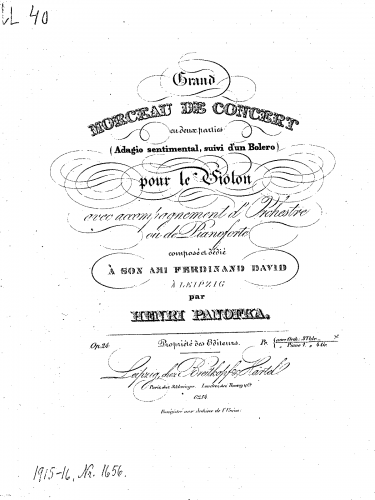 LL 40
Grand
MORCEAU DE CONCERT
en deux parties
(Adagio sentimental, suivi d'un Bolero)
pour le Violon
avec accompagnement d'Orchestre
ou de Pianoforte
composé et dédié
À SON AMI FERDINAND DAVID
à LEIPZIG
par
HENRI PANOFKA.
Op. 24 Propriété des Editeurs. Pr.
Leipzig, chez Breitkopf & Härtel
Paris, chez Schlesinger
Enregistré aux Archives de l'Union.
1915-16, Nr. 1656.